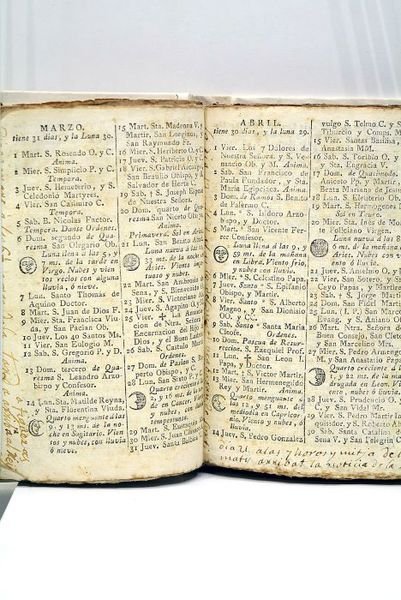 MARZO,
tiene 31 dias, y la Luna 30.
Anima.
1 Mart. S. Rosendo O. y C.
2 Mier. S. Simplicio P. y C.
Tempora.
3 Juev. S. Hemeterio, y S.
Celedonio Martyres.
4 Vier. San Casimiro C.
Tempora.
5 Sab. S. Nicolas Factor.
Tempora. Dante Ordenes.
6 Dom. segundo de Qua-
resma San Olegario Ob.
Luna llena á las 5, y
7 ms. de la tarde en
Virgo. Nubes y vien
tos recios con alguna
lluvia, ó nieve.
7 Lun. Santo Thomas de
Aquino Doctor.
8 Mart. S. Juan de Dios F.
9 Mier. Sta. Francisca Viu-
da, y San Pacian Ob.
10 Juev. Los 40 Santos Ms.
11 Vier. San Eulogio M.
12 Sab. S. Gregorio P. y D.
Anima.
13 Dom. tercero de Qua-
resma S. Leandro Arzo-
bispo y Confesor.
Anima.
14 Lun. Sta. Matilde Reyna,
y Sta. Florentina Viuda.
Quarto menguante á
las 9, y 13 ms. de la no-
che en Sagitario. Vien
tos y nubes, con lluvia
ó nieve.
15 Mart. Sta. Madrona V. y
Martir, San Longino, y
San Raymundo Fr.
16 Mier. S. Heriberto O. y C.
17 Juev. S. Patricio O. y C.
18 Vier. S. Gabriel Arcangel
San Braulio Obispo, y S.
Salvador de Horta C.
19 Sab. S. Joseph Esposo
de Nuestra Señora.
20 Dom. quarto de Qua-
resma San Niceto Obispo
Anima.
Primavera. Sol en Aries.
21 Lun. San Benito Abad
Luna nueva á las
33 ms. de la noche en
Aries. Viento
nubes.
22 Mart. San Ambrosio
23 Mier. S. Victoriano M.
24 Juev. S. Agapito O. y
25 Vier. ✝ La Anun-
ciacion de Ntra. Señora
Encarnacion del
Hijo, y el Buen Ladron
26 Sab. S. Castulo M.
Ordenes.
27 Dom. de Pasion S. Ru-
perto Obispo, y C.
28 Lun. San Sixto P.
Quarto creciente
ms. de la
de en Cancer.
y nubes, con
tempestuoso.
29 Mart. S. Eustasio
30 Mier. S. Juan Climaco
31 Juev. Santa Balbina
ABRIL,
tiene 30 dias, y la Luna 29.
1 Vier. Los 7 Dolores de
Nuestra Señora, y S. Ve-
nancio Ob. y M. Anima.
2 Sab. San Francisco de
Paula Fundador, y Sta.
Maria Egipciaca. Anima.
3 Dom. de Ramos S. Benito
de Palermo C.
4 Lun. * S. Isidoro Arzo-
bispo, y Doctor.
5 Mart. * San Vicente Fer-
rer Confesor.
Luna llena á las 9, y
59 ms. de la mañana
en Libra. Viento frio,
y nubes con lluvia.
6 Mier. * S. Celestino P.
7 Juev. Santo * S. Epifanio
Obispo, y Martir.
8 Vier. Santo * S. Alberto
Magno, y San Dionisio
Ob.
9 Sab. Santo * Santa Maria
Cleofe. Ordenes.
10 Dom. Pascua de Resur-
reccion. S. Ezequiel Prof.
11 Lun. ✝ San Leon I.
Papa, y Doctor.
12 Mart. S. Victor Martir.
13 Mier. San Hermenegildo
Rey, y Martir. Anima.
Quarto menguante á
las 5, y 51 ms. del
mediodia en Capricor-
nio. Viento y nubes, y
lluvia.
14 Juev. S. Pedro Gonzalez
vulgo S. Telmo C. y S.
Tiburcio y Comps. M.
15 Vier. Santas Basilisa,
Anastasia MM.
16 Sab. S. Toribio O. y
y Sta. Engracia V.
17 Dom. de Quasimodo.
Aniceto Pp. y Martir,
Beata Mariana de Jesus
18 Lun. S. Eleuterio Ob.
19 Mart. S. Hermogenes M.
Sol en Tauro.
20 Mier. Sta. Inés de Monte
Policiano Virgen.
Luna nueva á las 8
6 ms. de la mañana
Aries. Nubes con vien
to ó lluvia.
21 Juev. S. Anselmo O. y
22 Vier. San Sotero, y San
Cayo Papas, y Martires
23 Sab. ✝ S. Jorge Martir
24 Dom. San Fidel Martir
25 Lun. (I. P.) San Marcos
26 Mart. Ntra. Señora del
Buen Consejo, San Cleto
y San Marcelino Mrs.
27 Mier. S. Pedro Armengol
M. y San Anastasio P.
Quarto creciente á las
y 22 ms. de la ma-
drugada en Leon. Vien
tos y nubes, ó lluvia.
28 Juev. S. Prudencio O. y
y San Vidal Mr.
29 Vier. S. Pedro Martir In-
quisidor, y S. Roberto Abad
30 Sab. Santa Catalina de
Sena V. y San Pelegrin C.
dia 21 a las 7 horas y